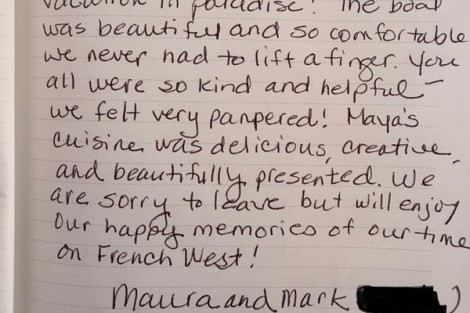 vacation in paradise! The boat
was beautiful and so comfortable
we never had to lift a finger. You
all were so kind and helpful –
we felt very pampered! Maya's
cuisine was delicious, creative,
and beautifully presented. We
are sorry to leave but will enjoy
our happy memories of our time
on French West!
Maura and Mark )